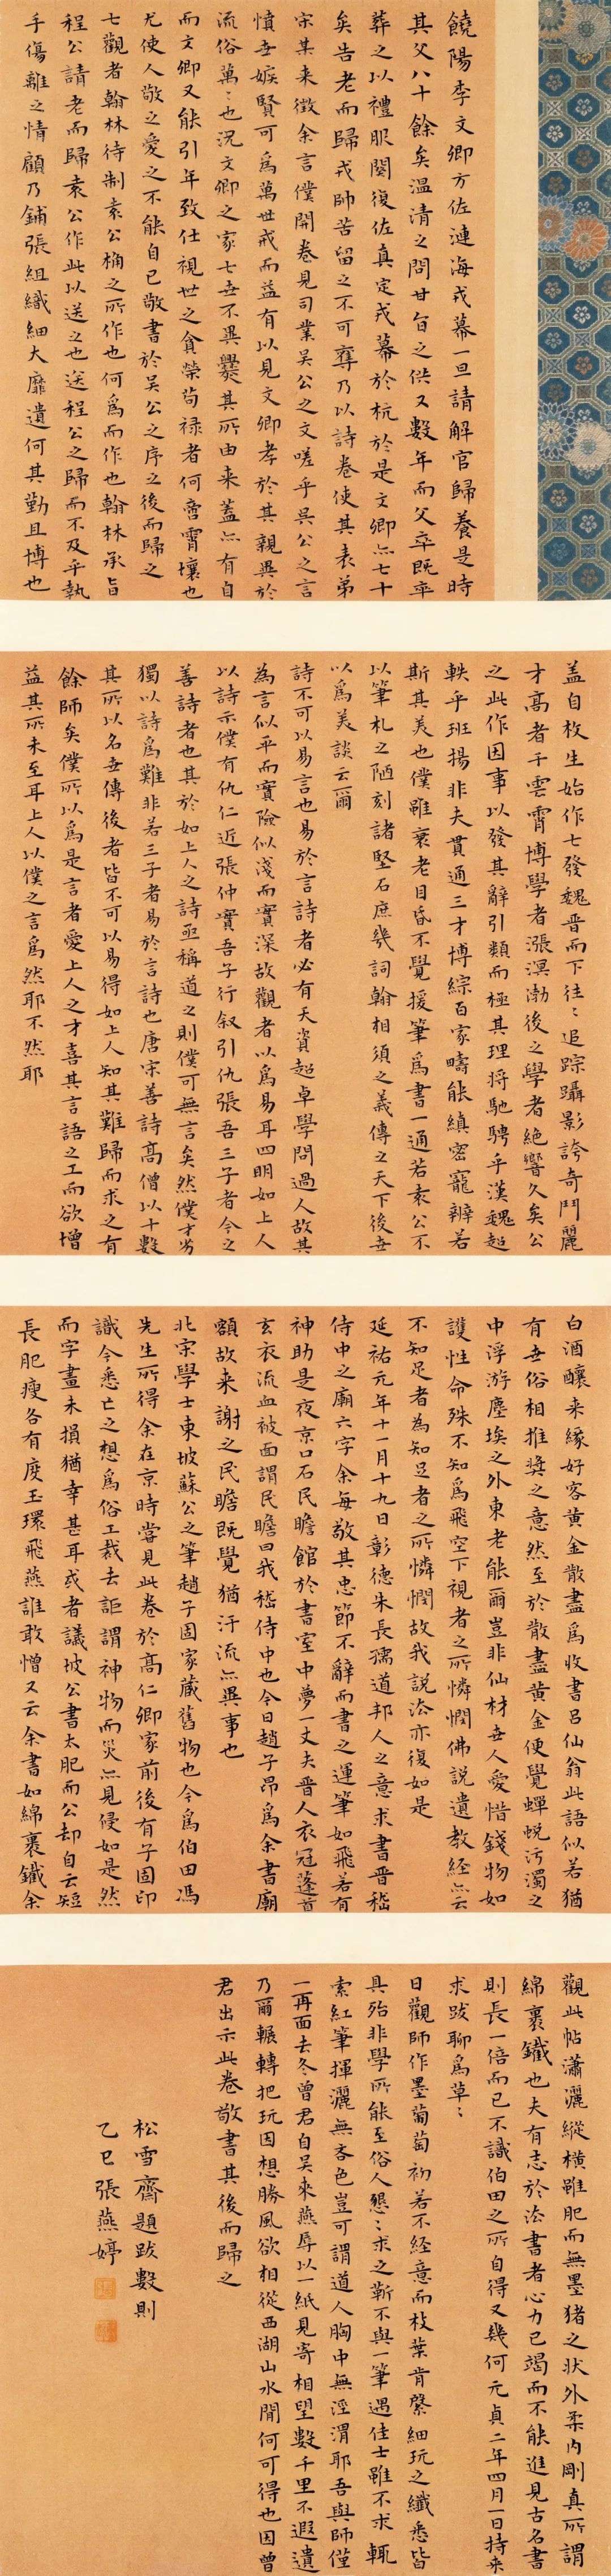 饒陽李文卿方佐漣海戎幕一旦請解官歸養是時
其父八十餘矣溫凊之問甘旨之供又數年而父卒既卒
葬之以禮服闋復佐真定戎幕於杭於是文卿亦七十
矣告老而歸戎帥苦留之不可奪乃以詩卷使其表弟
宗其来徵余言僕開卷見司業吴公之文嗟乎吴公之言
憤世嫉賢可為萬世戒而益有以見文卿孝於其親異於
流俗萬々也況文卿之家七世不異爨其所由来蓋亦有自
而文卿又能引年致仕視世之貪榮苟禄者何啻霄壤也
尤使人敬之愛之不能自已敬書於吴公之序之後而歸之
七觀者翰林待制袁公桷之所作也何為而作也翰林承旨
程公請老而歸袁公作此以送之也送程公之歸而不及乎執
手傷離之情顧乃鋪張組織細大靡遺何其勤且博也
盖自枚生始作七發魏晋而下往々追踪躡影誇奇鬥麗
才高者干雲霄博學者漲溟渤後之學者絶響久矣公
之此作因事以發其辭引類而極其理将馳騁乎漢魏超
軼乎班揚非夫貫通三才博綜百家疇能縝密寵辨若
斯其美也僕雖衰老目昏不覺援筆為書一通若袁公不
以筆札之陋刻諸堅石庶幾詞翰相須之義傳之天下後世
以為美談云爾
詩不可以易言也易於言詩者必有天資超卓學問過人故其
為言似平而實險似淺而實深故觀者以為易耳四明如上人
以詩示僕有仇仁近張仲實吾子行叙引仇張吾三子者今之
善詩者也其於如上人之詩亟稱道之則僕可無言矣然僕才劣
獨以詩為難非若三子者易於言詩也唐宋善詩高僧以十數
其所以名世傳後者皆不可以易得如上人知其難歸而求之有
餘師矣僕所以為是言者愛上人之才喜其言語之工而欲增
益其所未至耳上人以僕之言為然耶不然耶
白酒釀来緣好客黄金散盡為收書吕仙翁此語似若猶
有世俗相推獎之意然至於散盡黄金便覺蟬蜕污濁之
中浮游塵埃之外東老能爾豈非仙材世人愛惜錢物如
護性命殊不知為飛空下視者之所憐憫佛説遺教經亦云
不知足者為知足者之所憐憫故我説添亦復如是
延祐元年十一月十九日彰德朱長孺道邦人之意求書晋嵇
侍中之廟六字余每敬其忠節不辭而書之運筆如飛若有
神助是夜京口石民瞻館於書室中夢一丈夫晋人衣冠蓬首
玄衣流血被面謂民瞻曰我嵇侍中也今日趙子昂為余書廟
額故来謝之民瞻既覺猶汗流亦異事也
北宋學士東坡蘇公之筆趙子固家蔵舊物也今為伯田馮
先生所得余在京時嘗見此卷於高仁卿家前後有子固印
識今悉亡之想為俗工裁去詎謂神物而災亦見侵如是然
而字畫未損猶幸甚耳或者議坡公書太肥而公却自云短
長肥瘦各有度玉環飛燕誰敢憎又云余書如綿裹鐵余
觀此帖瀟灑縱橫雖肥而無墨猪之状外柔内剛真所謂
綿裹鐵也夫有志於法書者心力已竭而不能進見古名書
則長一倍而已不識伯田之所自得又幾何元貞二年四月一日持来
求跋聊為草々
日觀師作墨葡萄初若不经意而枝葉肯綮細玩之纖悉皆
具殆非學所能至俗人懇々求之靳不與一筆遇佳士雖不求輒
索紅筆揮灑無吝色豈可謂道人胸中無涇渭耶吾與師僅
一再面去冬曾君自吴来燕辱以一紙見寄相望數千里不遐遺
乃爾輾轉把玩因想勝風欲相從西湖山水間何可得也因曾
君出示此卷敬書其後而歸之
松雪齋題跋數則
乙巳張燕婷